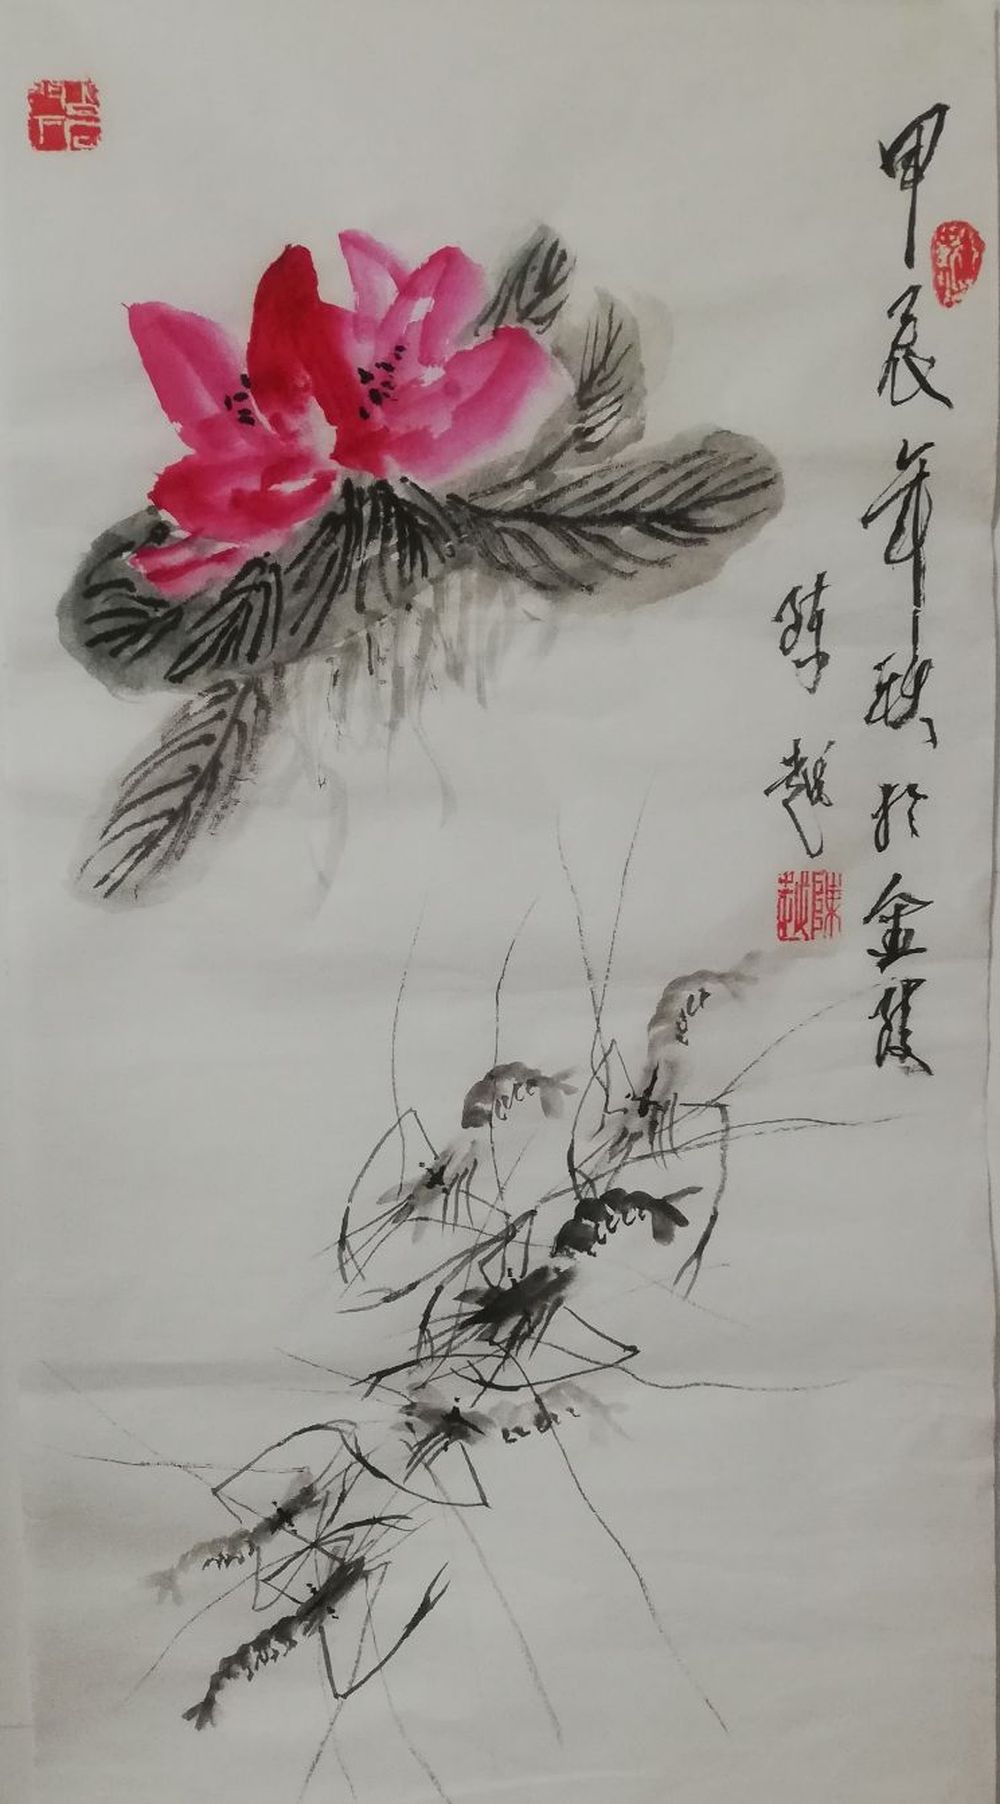 甲辰年秋於金霞
陈越
陳越